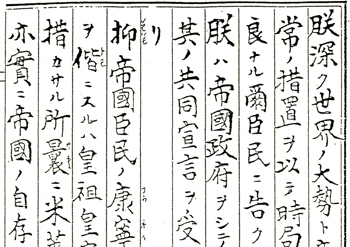 朕深ク世界ノ大勢ト
常ノ措置ヲ以テ時局
良ナル爾臣民ニ告ク
朕ハ帝國政府ヲシテ
其ノ共同宣言ヲ受
リ
抑帝國臣民ノ康寧
ヲ偕ニスルハ皇祖皇
措カサル所曩ニ米
亦實ニ帝國ノ自存